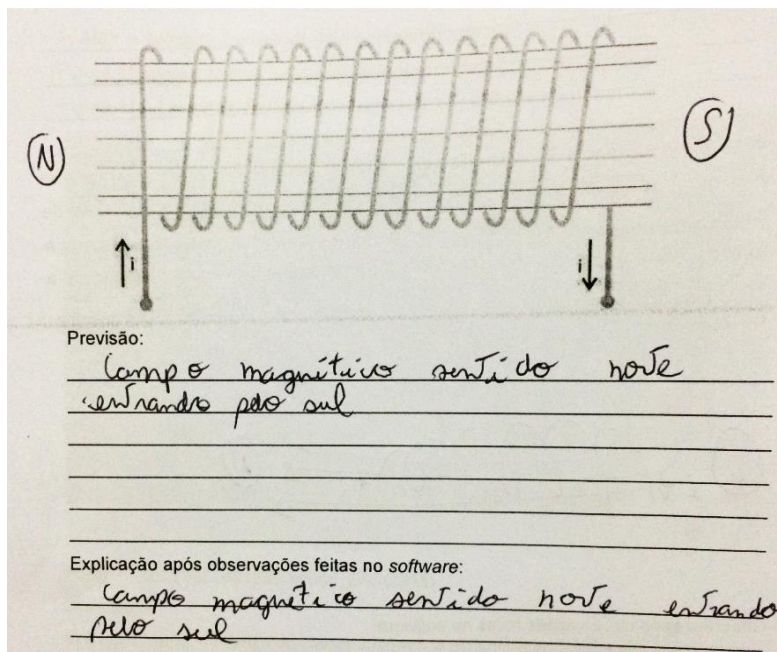 N
S
i
i
Previsão:
Campo magnético sentido norte
entrando pelo sul
Explicação após observações feitas no software:
Campo magnético sentido norte entrando
pelo sul